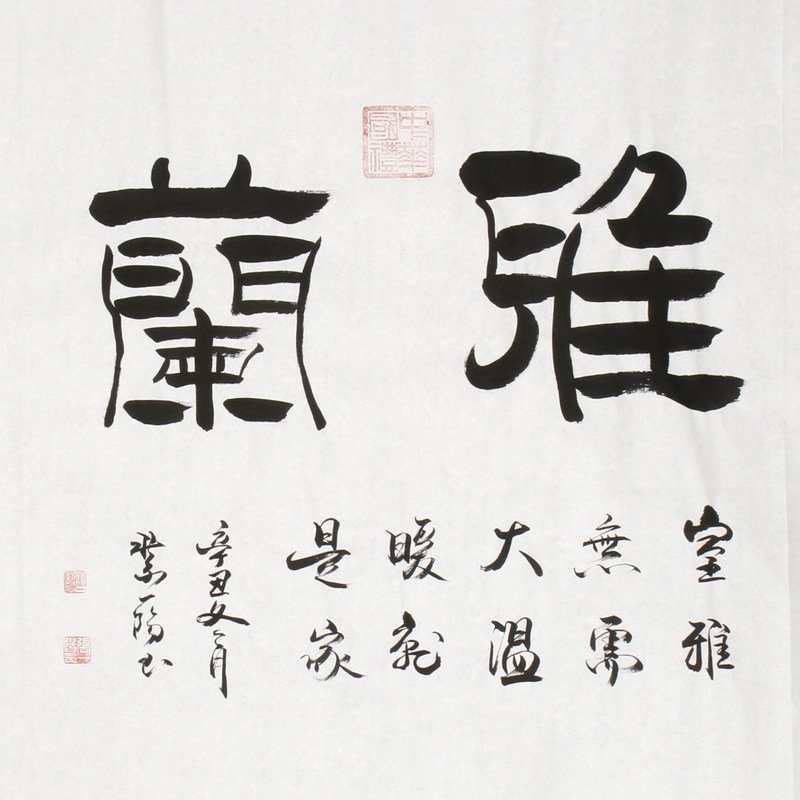 雅蘭
中華
國禮
室雅
無需
大溫
暖就
是家
辛丑冬月
紫陽书